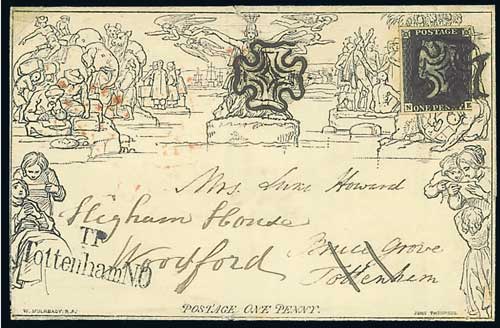 POSTAGE
ONE PENNY
N E
Mrs. Luke Howard
Higham House
Woodford
Bruce Grove
Tottenham
TP
Tottenham NO
W. MULREADY. R.A.
POSTAGE ONE PENNY.
JOHN THOMPSON